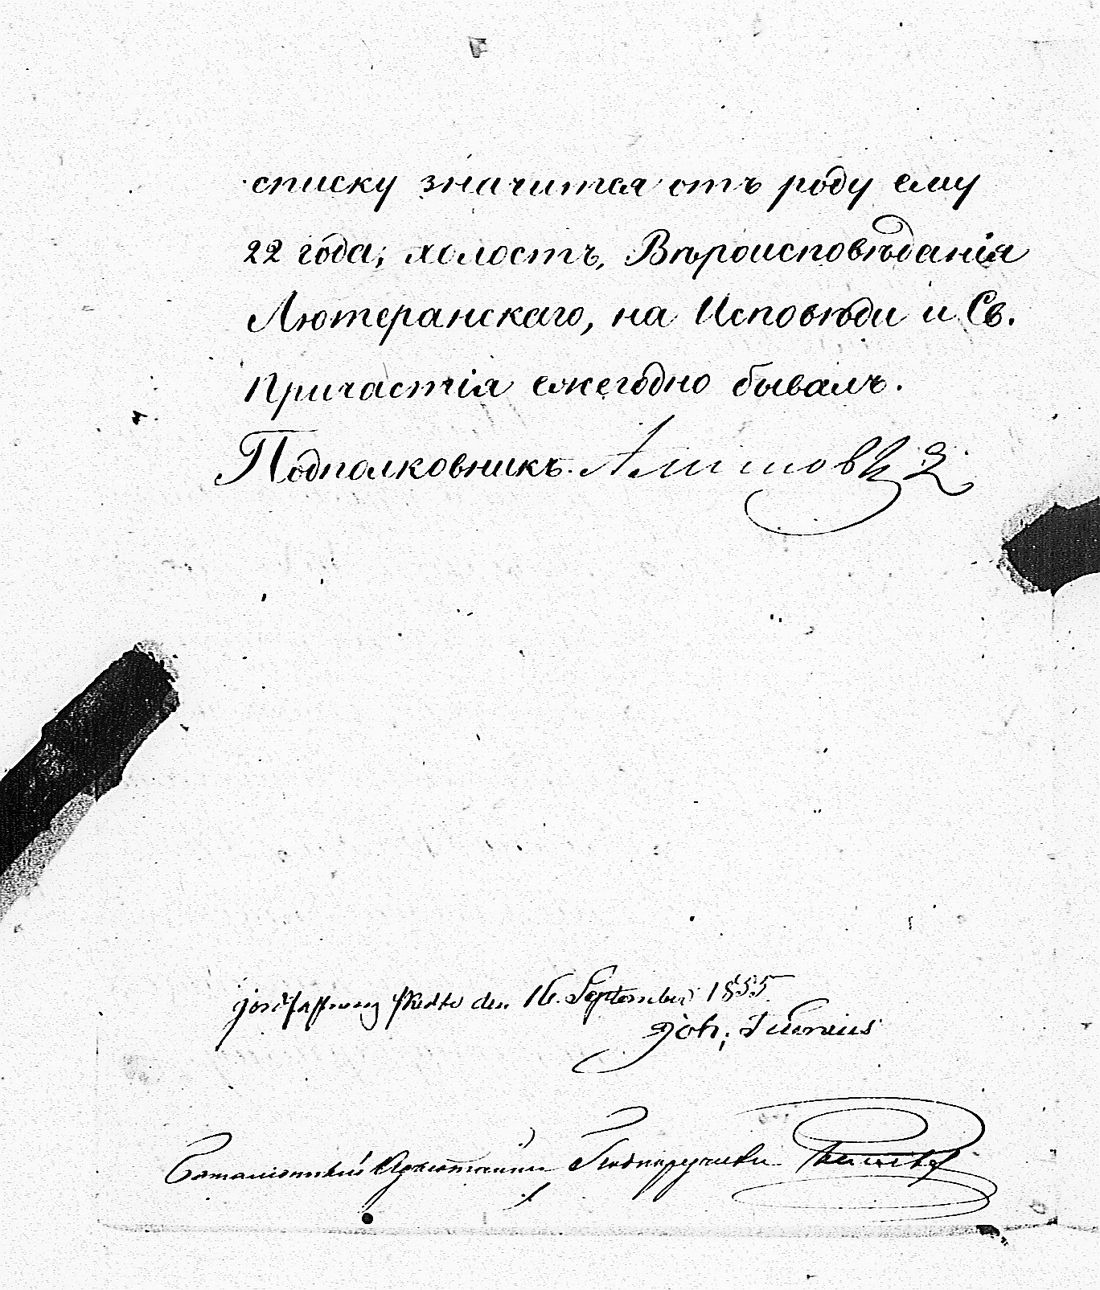 списку значится отъ роду ему
22 года; холостъ, Вѣроисповѣданія
Лютеранскаго, на Исповѣди и Св.
Причастія ежегодно бывалъ.
Подполковникъ
den 16. September 1855
Joh.
Баталіонный Адъютантъ Подпоручикъ